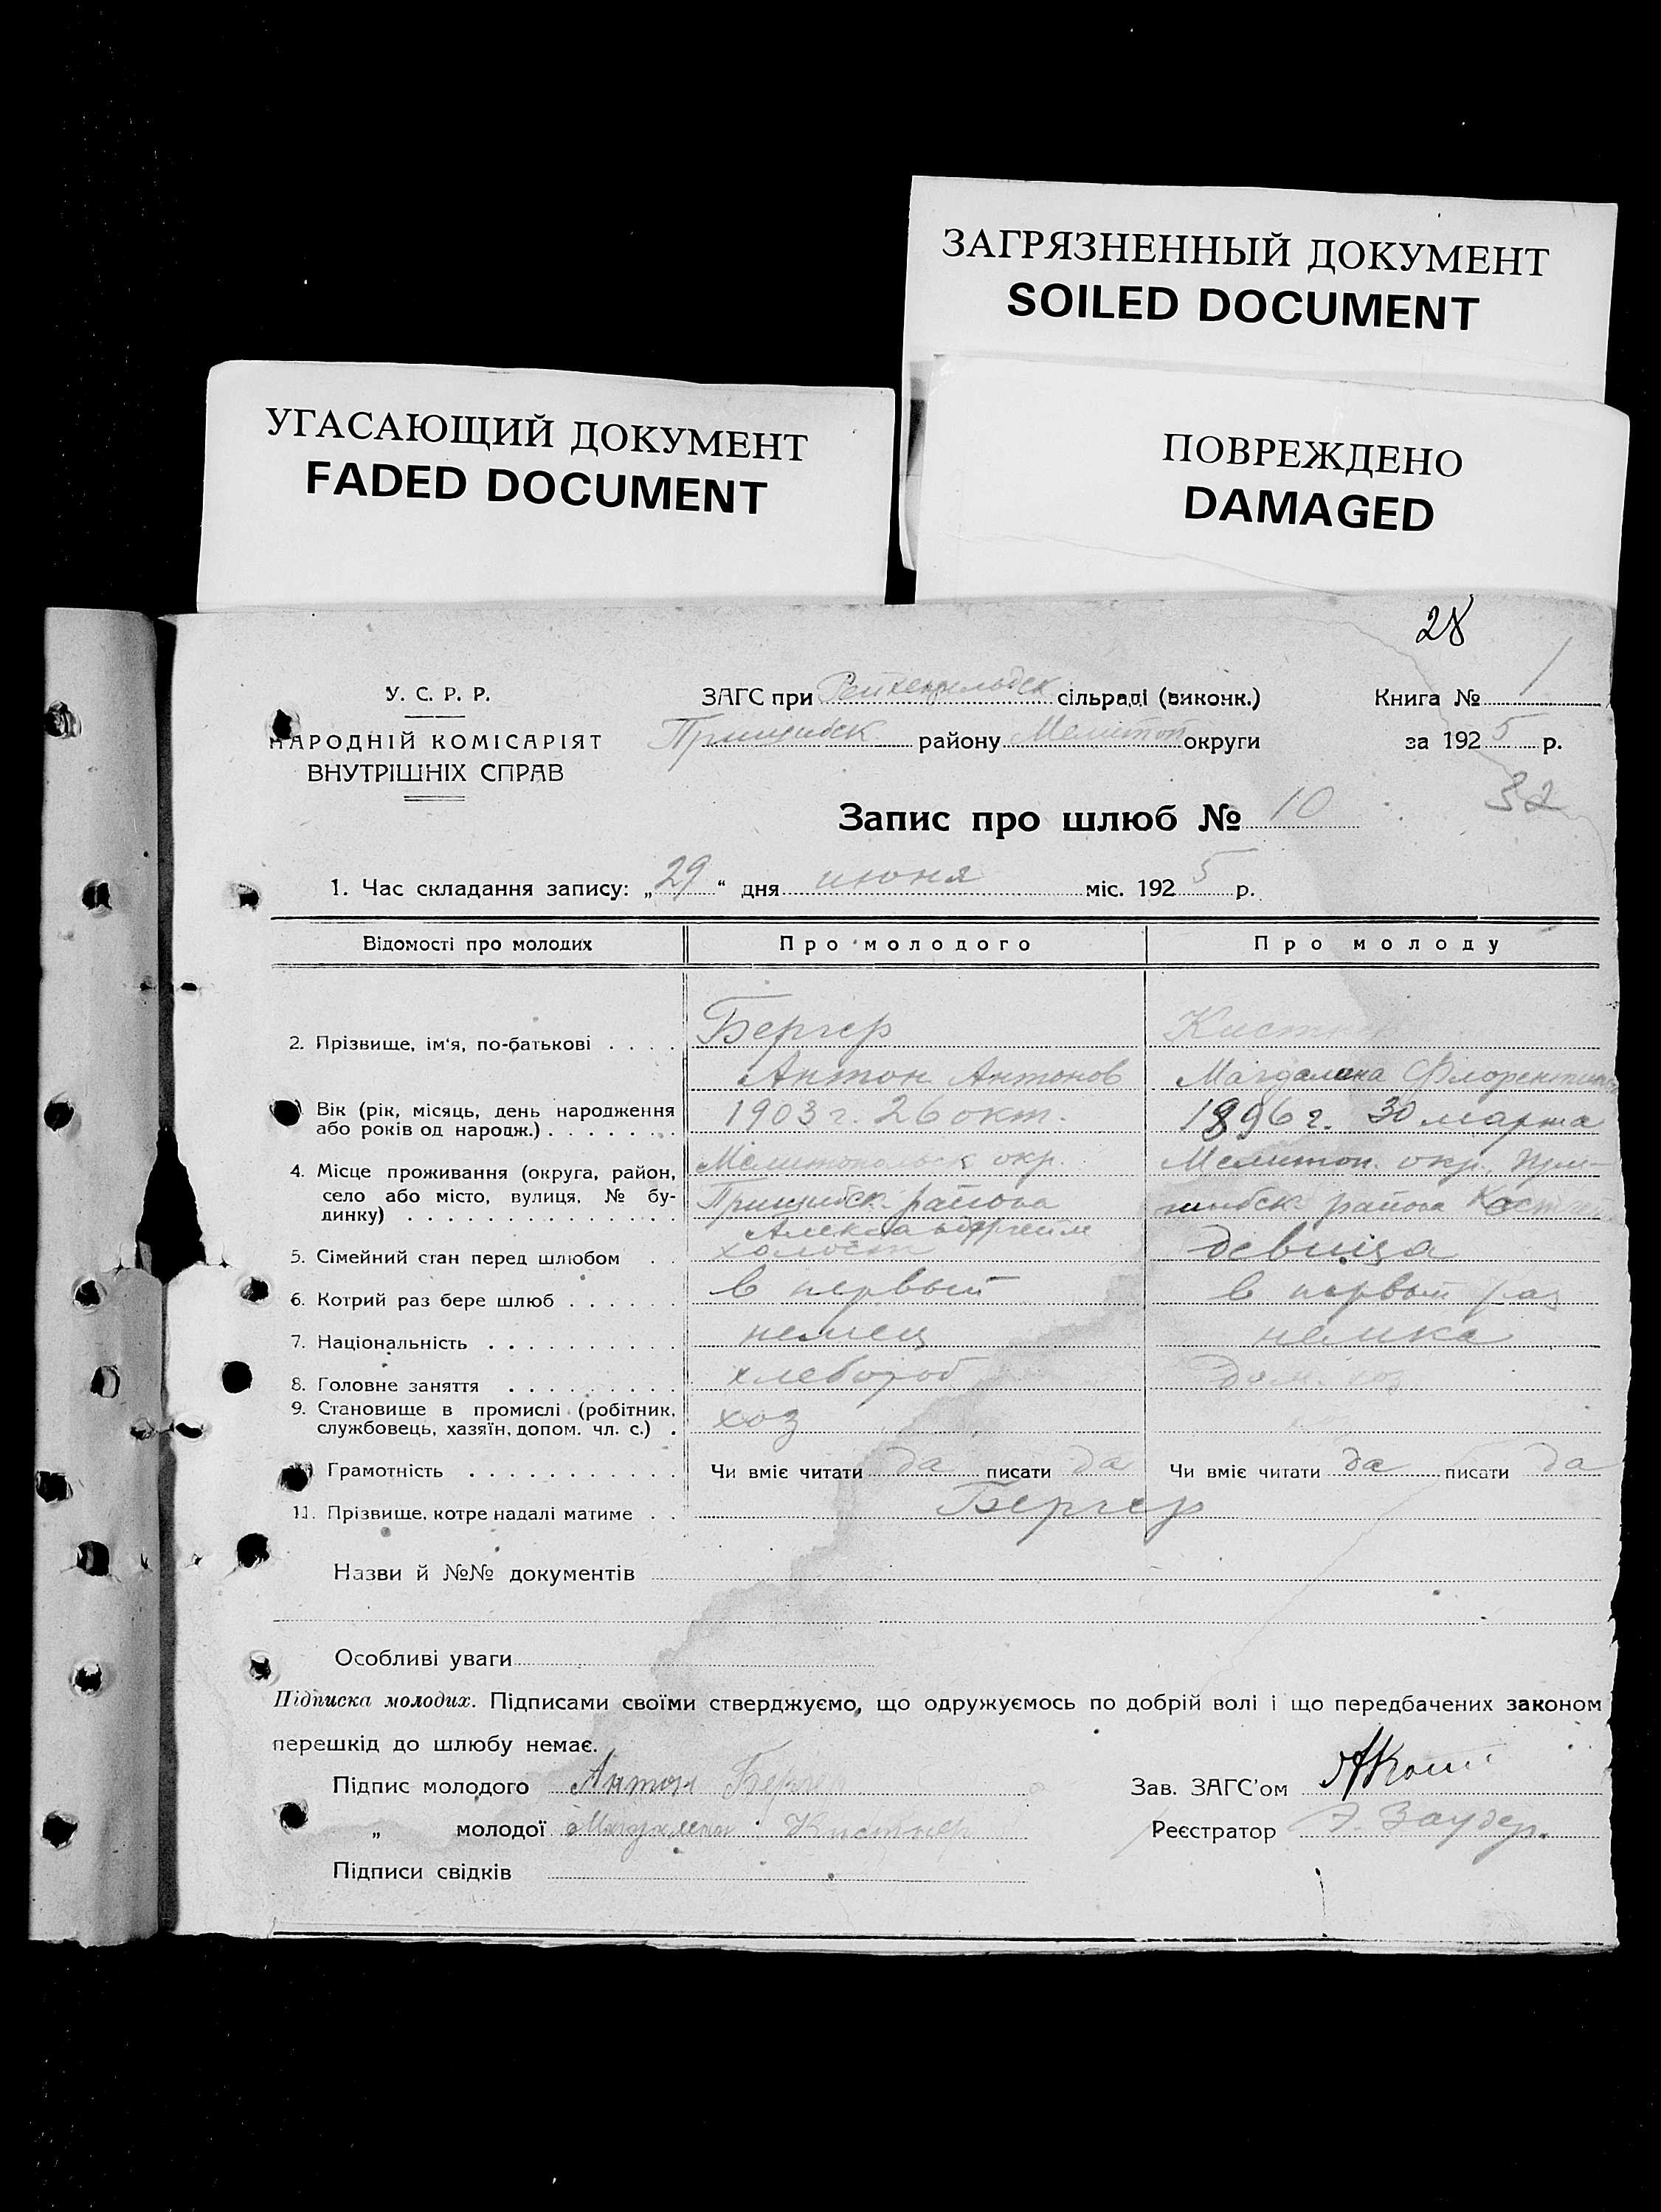 ЗАГРЯЗНЕННЫЙ ДОКУМЕНТ
SOILED DOCUMENT
УГАСАЮЩИЙ ДОКУМЕНТ
FADED DOCUMENT
ПОВРЕЖДЕНО
DAMAGED
28
У. С. Р. Р.
НАРОДНІЙ КОМІСАРІЯТ
ВНУТРІШНІХ СПРАВ
ЗАГС при Рейхенфельдск сільраді (виконк.)
Пришибск району Мелитоп округи
Книга № 1
за 1925 р.
32
Запис про шлюб № 10
1. Час складання запису: „29“ дня июня міс. 1925 р.
Відомості про молодих Про молодого Про молоду
2. Прізвище, ім'я, по-батькові . . . . Бергер Кистнер
Антон Антонов Магдалина
Вік (рік, місяць, день народження
або років од народж.) . . . . . . . 1903 г. 26 окт. 1896 г. 30 марта
4. Місце проживання (округа, район, Мелитопольск окр. Мелитоп. окр. При-
село або місто, вулиця, № бу-
динку) . . . . . . . . . . . . . . Пришибск. района шибск. района
5. Сімейний стан перед шлюбом . . холост девица
6. Котрий раз бере шлюб . . . . . . в первый в первый раз
7. Національність . . . . . . . . . . немец немка
8. Головне заняття . . . . . . . . . хлебороб дом. хоз
9. Становище в промислі (робітник,
службовець, хазяїн, допом. чл. с.) . хоз
Грамотність . . . . . . . . . . . Чи вміє читати да писати да Чи вміє читати да писати да
11. Прізвище, котре надалі матиме . . Бергер
Назви й №№ документів
Особливі уваги
Підписка молодих. Підписами своїми стверджуємо, що одружуємось по добрій волі і що передбачених законом
перешкід до шлюбу немає.
Підпис молодого Антон Бергер Зав. ЗАГС'ом
„ молодої Магдалена Кистнер Реєстратор Заудер.
Підписи свідків